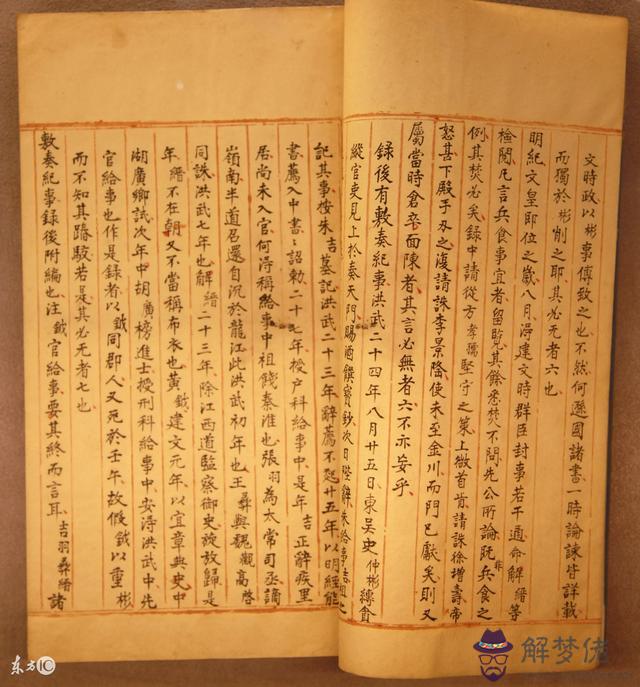 文時政以彬事傅致之也不然何遜國諸書一時論諫皆詳載
而獨於彬削之耶其必无者六也
明紀文皇即位之歲八月淂建文時群臣封事若干通命解縉等
檢閱凡言兵食事宜者留覽其餘悉焚不問先公所論旣非兵食之
例其焚必矣録中請從方孝孺堅守之策上微首肯請誅徐增壽帝
怒甚下殿手刃之復請誅李景隆使未至金川而門已獻矣則又
屬當時倉卒面陳者其言必無者六不亦妄乎
録後有敷奏紀事洪武二十四年八月廿五日東吴史仲彬縛貪
縱官吏見上於奏天門賜酒饌寳鈔次日陛辭朱給事吉祖之
記其事按朱吉墓記洪武二十三年辭薦不起廿五年以明經能
書薦入中書詔勅二十七年授户科給事中是年吉正辭疾里
居尚未入官何淂稱給事中祖餞秦淮也張羽為太常司丞謫
嶺南半道召還自沉於龍江此洪武初年也王彞與魏觀高啓
同誅洪武七年也解縉二十三年除江西道監察御史旋放歸是
年縉不在朝又不當稱布衣也黄鉞建文元年以宜章典史中
湖廣鄉試次年中胡廣榜進士授刑科給事中安淂洪武中先
官給事也作是録者以鉞同郡人又死於壬年故假鉞以重彬
而不知其踳駁若是其必无者七也
敷奏紀事録後附編也注鉞官給事要其終而言耳吉羽彞縉諸
解梦佬
东方IC